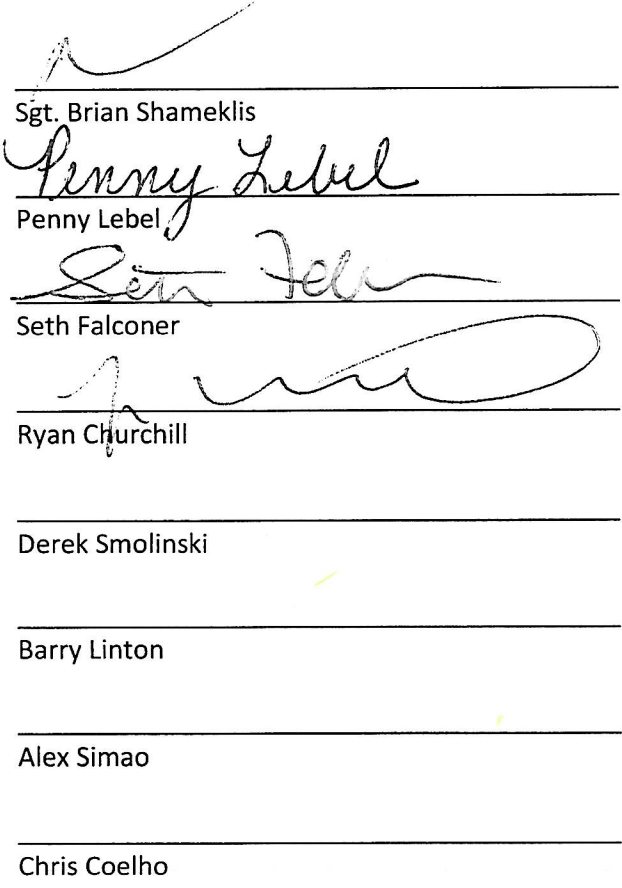 Sgt. Brian Shameklis
Penny Lebel
Penny Lebel
Seth Falconer
Ryan Churchill
Derek Smolinski
Barry Linton
Alex Simao
Chris Coelho